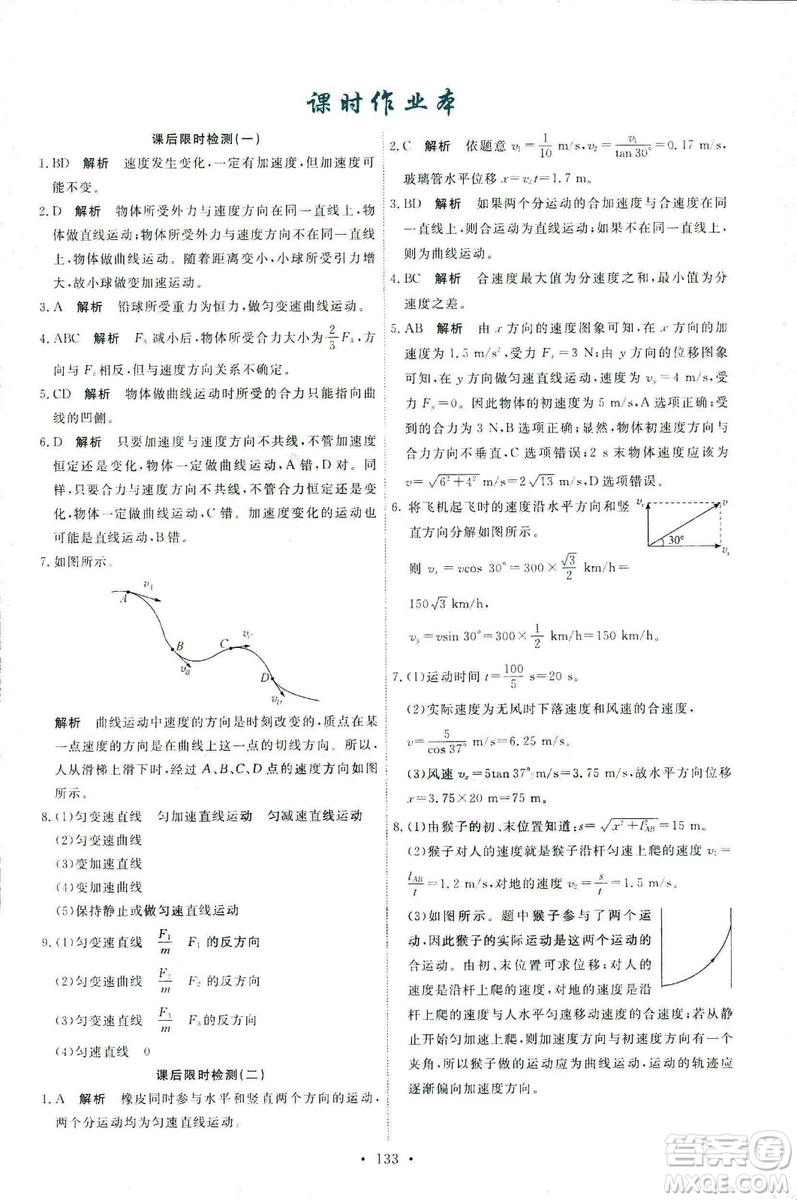 课时作业本
课后限时检测(一)
1. BD　解析　速度发生变化,一定有加速度,但加速度可
能不变。
2. D　解析　物体所受外力与速度方向在同一直线上,物
体做直线运动;物体所受外力与速度方向不在同一直线
上,物体做曲线运动。随着距离变小,小球所受引力增
大,故小球做变加速曲线运动。
3. A　解析　铅球所受重力为恒力,做匀变速曲线运动。
4. ABC　解析　F₃ 减小后,物体所受合力大小为 2/3 F₃,方
向与 F₃ 相反,但与速度方向的关系不确定。
5. CD　解析　物体做曲线运动时所受的合力只能指向曲
线的凹侧。
6. D　解析　只要加速度与速度方向不共线,不管加速度
恒定还是变化,物体一定做曲线运动,A 错,D 对。同样,
只要合力与速度方向不共线,不管合力恒定还是变化,
物体一定做曲线运动,C 错。加速度变化的运动也
可能是直线运动,B 错。
7. 如图所示。
A
B
C
D
解析　曲线运动中速度的方向是时刻改变的,质点在某
一点速度的方向是在曲线上这一点的切线方向。所以,
人从滑梯上滑下时,经过 A、B、C、D 点的速度方向如图
所示。
8. (1)匀变速直线　匀加速直线运动　匀减速直线运动
(2)匀变速曲线
(3)变加速直线
(4)变加速曲线
(5)保持静止或做匀速直线运动
9. (1)匀变速直线　F₁/m　F₁ 的反方向
(2)匀变速曲线　F₂/m　F₂ 的反方向
(3)匀变速直线　F₃/m　F₃ 的反方向
(4)匀速直线　0
课后限时检测(二)
1. A　解析　橡皮同时参与水平和竖直两个方向的运动,
两个分运动均为匀速直线运动。
2. C　解析　依题意 v₁=1/10 m/s,v₂=v₁/tan 30°=0.17 m/s,
玻璃管水平位移 x=v₂t=1.7 m。
3. BD　解析　如果两个分运动的合加速度与合速度在同
一直线上,则合运动为直线运动;如果不在同一直线上,
则为曲线运动。
4. BC　解析　合速度最大值为分速度之和,最小值为分
速度之差。
5. AB　解析　由 x 方向的速度图象可知,在 x 方向的加速
度为 1.5 m/s²,受力 Fₓ=3 N;由 y 方向的位移图象
可知,在 y 方向做匀速直线运动,速度为 v_y=4 m/s,受
力 F_y=0。因此物体的初速度为 5 m/s,A 选项正确;受到
的合力为 3 N,B 选项正确;显然,初速度方向与合力
方向不垂直,C 选项错误;2 s 末物体速度应该为
v=√(6²+4²) m/s=2√13 m/s,D 选项错误。
6. 将飞机起飞时的速度沿水平方向和竖
直方向分解如图所示。
v
30°
则 vₓ=vcos 30°=300×√3/2 km/h=
150√3 km/h,
v_y=vsin 30°=300×1/2 km/h=150 km/h。
7. (1)运动时间 t=100/5 s=20 s。
(2)实际速度为无风时下落速度和风速的合速度,
v=5/cos37° m/s=6.25 m/s。
(3)风速 vₓ=5tan37° m/s=3.75 m/s,故水平方向位移
x=3.75×20 m=75 m。
8. (1)由猴子的初、末位置知道:s=√(x²+l²_AB)=15 m。
(2)猴子对人的速度就是猴子沿杆匀速上爬的速度 v₁=
l_AB/t=1.2 m/s,对地的速度 v₂=s/t=1.5 m/s。
(3)如图所示。题中猴子参与了两个运
动,因此猴子的实际运动是这两个运动的
合运动。由初、末位置可知,猴子对人的
速度是沿杆上爬的速度,对地的速度是
沿杆上爬的速度与人水平匀速移动速度的合速度;若从静
止开始匀加速上爬,则加速度方向始终与速度方向有一个
夹角,所以猴子做的运动为曲线运动,运动的轨迹应
逐渐偏向加速度方向。
133
答案圈
MXQE.COM